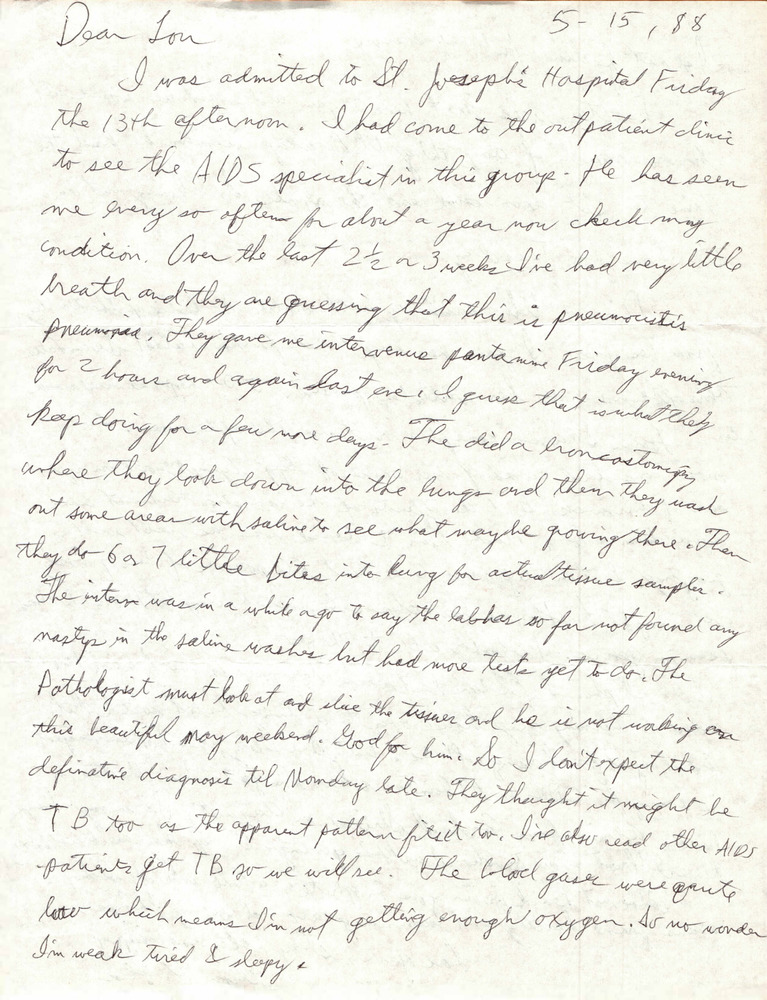 5-15, 88
Dear Lou
I was admitted to St. Joseph's Hospital Friday
the 13th afternoon. I had come to the outpatient clinic
to see the AIDS specialist in this group - He has seen
me every so often for about a year now check my
condition. Over the last 2½ or 3 weeks I've had very little
breath and they are guessing that this is pneumocistis
pneumonia. They gave me intervenus pentamine Friday evening
for 2 hours and again last eve. I guess that is what they
keep doing for a few more days - The did a broncostomopy
where they look down into the lungs and then they wash
out some areas with saline to see what maybe growing there. Then
they do 6 or 7 little bites into lung for actual tissue samples.
The intern was in a while ago to say the lab has so far not found any
nastys in the saline washes but had more tests yet to do. The
Pathologist must look at and slice the tissues and he is not working on
this beautiful May weekend. Good for him. So I don't expect the
definative diagnosis til Monday late. They thought it might be
TB too as the apparent pattern fits it too. I've also read other AIDS
patients get TB so we will see. The blood gases were quite
low which means I'm not getting enough oxygen. So no wonder
I'm weak tired & sleepy.